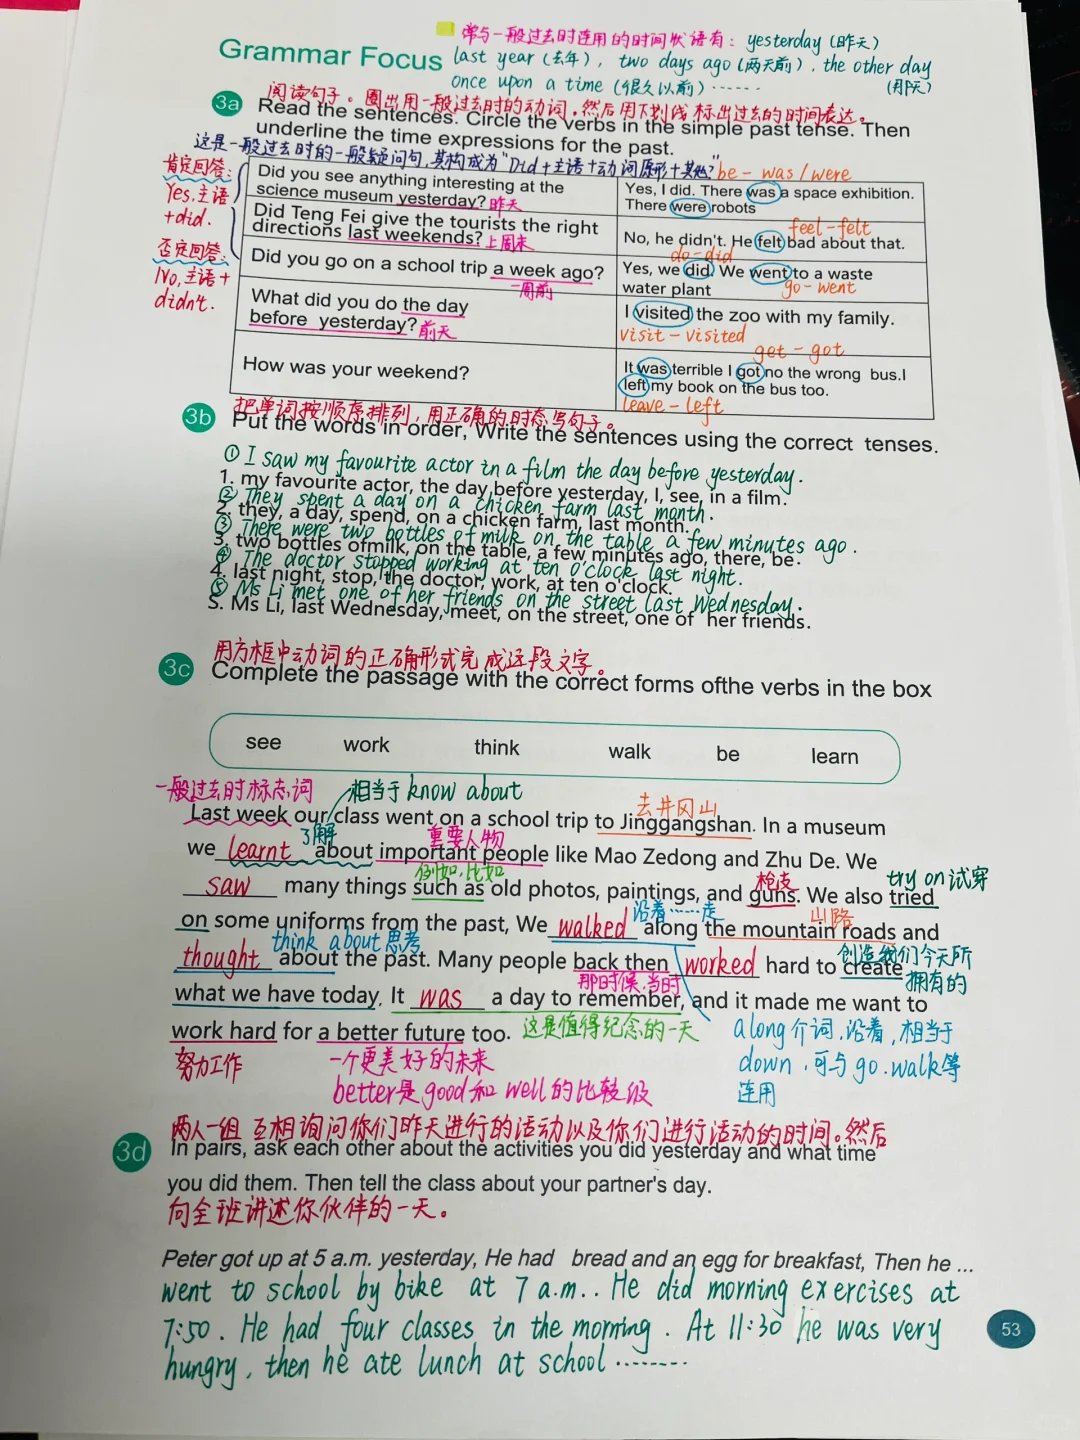 常与一般过去时连用的时间状语有：yesterday（昨天）
Grammar Focus
last year（去年），two days ago（两天前），the other day
once upon a time（很久以前）……（那天）
阅读句子。圈出用一般过去时的动词，然后用下划线标出过去的时间表达。
3a Read the sentences. Circle the verbs in the simple past tense. Then
underline the time expressions for the past.
这是一般过去时的一般疑问句，其构成为"Did+主语+动词原形+其他?"
be - was/were
肯定回答：
Yes,主语
+did.
否定回答：
No,主语+
didn't.
Did you see anything interesting at the
science museum yesterday? 昨天
Yes, I did. There was a space exhibition.
There were robots
feel-felt
Did Teng Fei give the tourists the right
directions last weekends? 上周末
No, he didn't. He felt bad about that.
do-did
Did you go on a school trip a week ago?
一周前
Yes, we did. We went to a waste
water plant
go-went
What did you do the day
before yesterday? 前天
I visited the zoo with my family.
visit-visited
get-got
How was your weekend?
It was terrible I got no the wrong bus.I
left my book on the bus too.
leave-left
把单词按顺序排列，用正确的时态写句子。
3b Put the words in order, Write the sentences using the correct tenses.
① I saw my favourite actor in a film the day before yesterday.
1. my favourite actor, the day before yesterday, I, see, in a film.
② They spent a day on a chicken farm last month.
2. they, a day, spend, on a chicken farm, last month.
③ There were two bottles of milk on the table a few minutes ago.
3. two bottles ofmilk, on the table, a few minutes ago, there, be.
④ The doctor stopped working at ten o'clock last night.
4. last night, stop, the doctor, work, at ten o'clock.
⑤ Ms Li met one of her friends on the street last Wednesday.
5. Ms Li, last Wednesday, meet, on the street, one of her friends.
用方框中动词的正确形式完成这段文字。
3c Complete the passage with the correct forms ofthe verbs in the box
see work think walk be learn
一般过去时标志词 相当于know about
去井冈山
Last week our class went on a school trip to Jinggangshan. In a museum
了解 重要人物
we learnt about important people like Mao Zedong and Zhu De. We
例如，比如 枪支 try on 试穿
saw many things such as old photos, paintings, and guns. We also tried
沿着……走 山路
on some uniforms from the past, We walked along the mountain roads and
think about 思考 创造我们今天所
拥有的
thought about the past. Many people back then worked hard to create
那时候，当时
what we have today. It was a day to remember, and it made me want to
work hard for a better future too. 这是值得纪念的一天
努力工作 一个更美好的未来
better是good和well的比较级
along介词，沿着，相当于
down，可与go、walk等
连用
两人一组 互相询问你们昨天进行的活动以及你们进行活动的时间。然后
3d In pairs, ask each other about the activities you did yesterday and what time
you did them. Then tell the class about your partner's day.
向全班讲述你伙伴的一天。
Peter got up at 5 a.m. yesterday, He had bread and an egg for breakfast, Then he ...
went to school by bike at 7 a.m.. He did morning exercises at
7:50. He had four classes in the morning. At 11:30 he was very
hungry, then he ate lunch at school ........
53